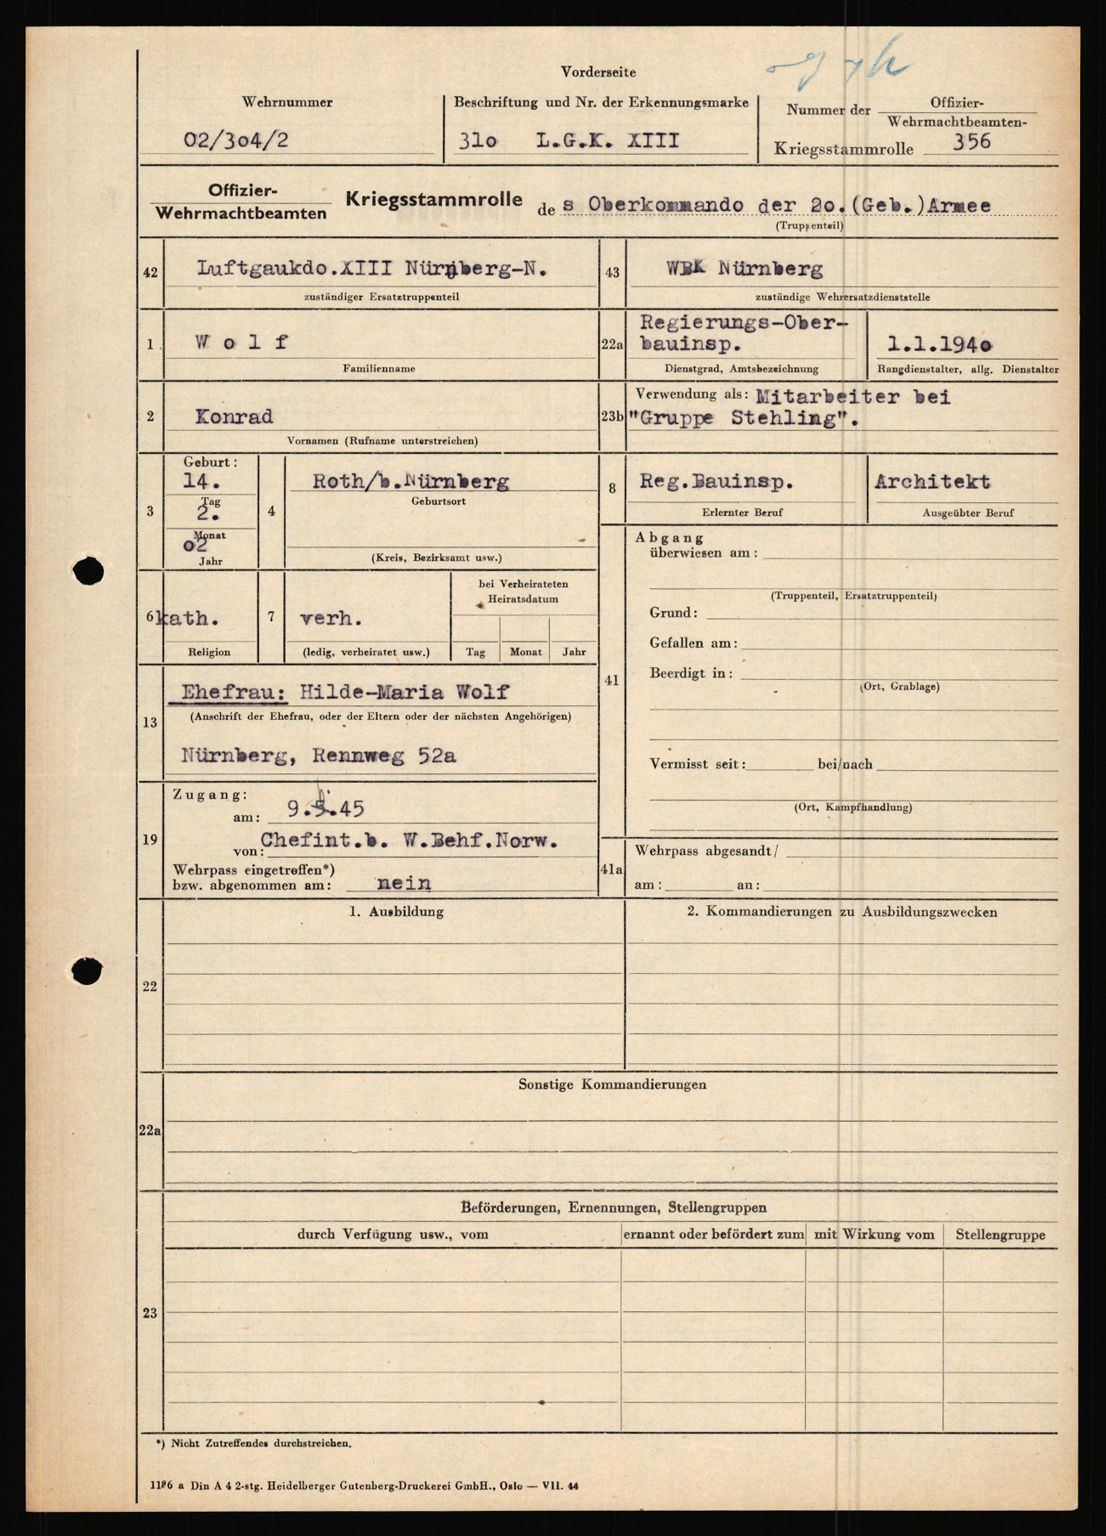 Vorderseite
Wehrnummer
02/304/2
Beschriftung und Nr. der Erkennungsmarke
31o L.G.K. XIII
Nummer der Offizier-
Wehrmachtbeamten-
Kriegsstammrolle 356
Offizier-
Wehrmachtbeamten
Kriegsstammrolle des Oberkommando der 2o.(Geb.)Armee
(Truppenteil)
42 Luftgaukdo.XIII Nürnberg-N.
zuständiger Ersatztruppenteil
43 WBK Nürnberg
zuständige Wehrersatzdienststelle
1. W o l f
Familienname
22a Regierungs-Ober-
bauinsp.
Dienstgrad, Amtsbezeichnung
1.1.194o
Rangdienstalter, allg. Dienstalter
2 Konrad
Vornamen (Rufname unterstreichen)
23b Verwendung als: Mitarbeiter bei
"Gruppe Stehling".
3 Geburt:
14.
Tag
2.
Monat
o2
Jahr
4 Roth/b.Nürnberg
Geburtsort
(Kreis, Bezirksamt usw.)
8 Reg.Bauinsp.
Erlernter Beruf
Architekt
Ausgeübter Beruf
6 kath.
Religion
7 verh.
(ledig, verheiratet usw.)
bei Verheirateten
Heiratsdatum
Tag Monat Jahr
41 Abgang
überwiesen am:
(Truppenteil, Ersatztruppenteil)
Grund:
Gefallen am:
Beerdigt in:
(Ort, Grablage)
Vermisst seit: bei/nach
(Ort, Kampfhandlung)
13 Ehefrau: Hilde-Maria Wolf
(Anschrift der Ehefrau, oder der Eltern oder der nächsten Angehörigen)
Nürnberg, Rennweg 52a
19 Zugang:
am: 9. .45
von: Chefint.b. W.Behf.Norw.
Wehrpass eingetroffen*)
bzw. abgenommen am: nein
41a Wehrpass abgesandt/
am: an:
1. Ausbildung
2. Kommandierungen zu Ausbildungszwecken
22
Sonstige Kommandierungen
22a
Beförderungen, Ernennungen, Stellengruppen
durch Verfügung usw., vom ernannt oder befördert zum mit Wirkung vom Stellengruppe
23
*) Nicht Zutreffendes durchstreichen.
1186 a Din A 4 2-stg. Heidelberger Gutenberg-Druckerei GmbH., Oslo — VII. 44